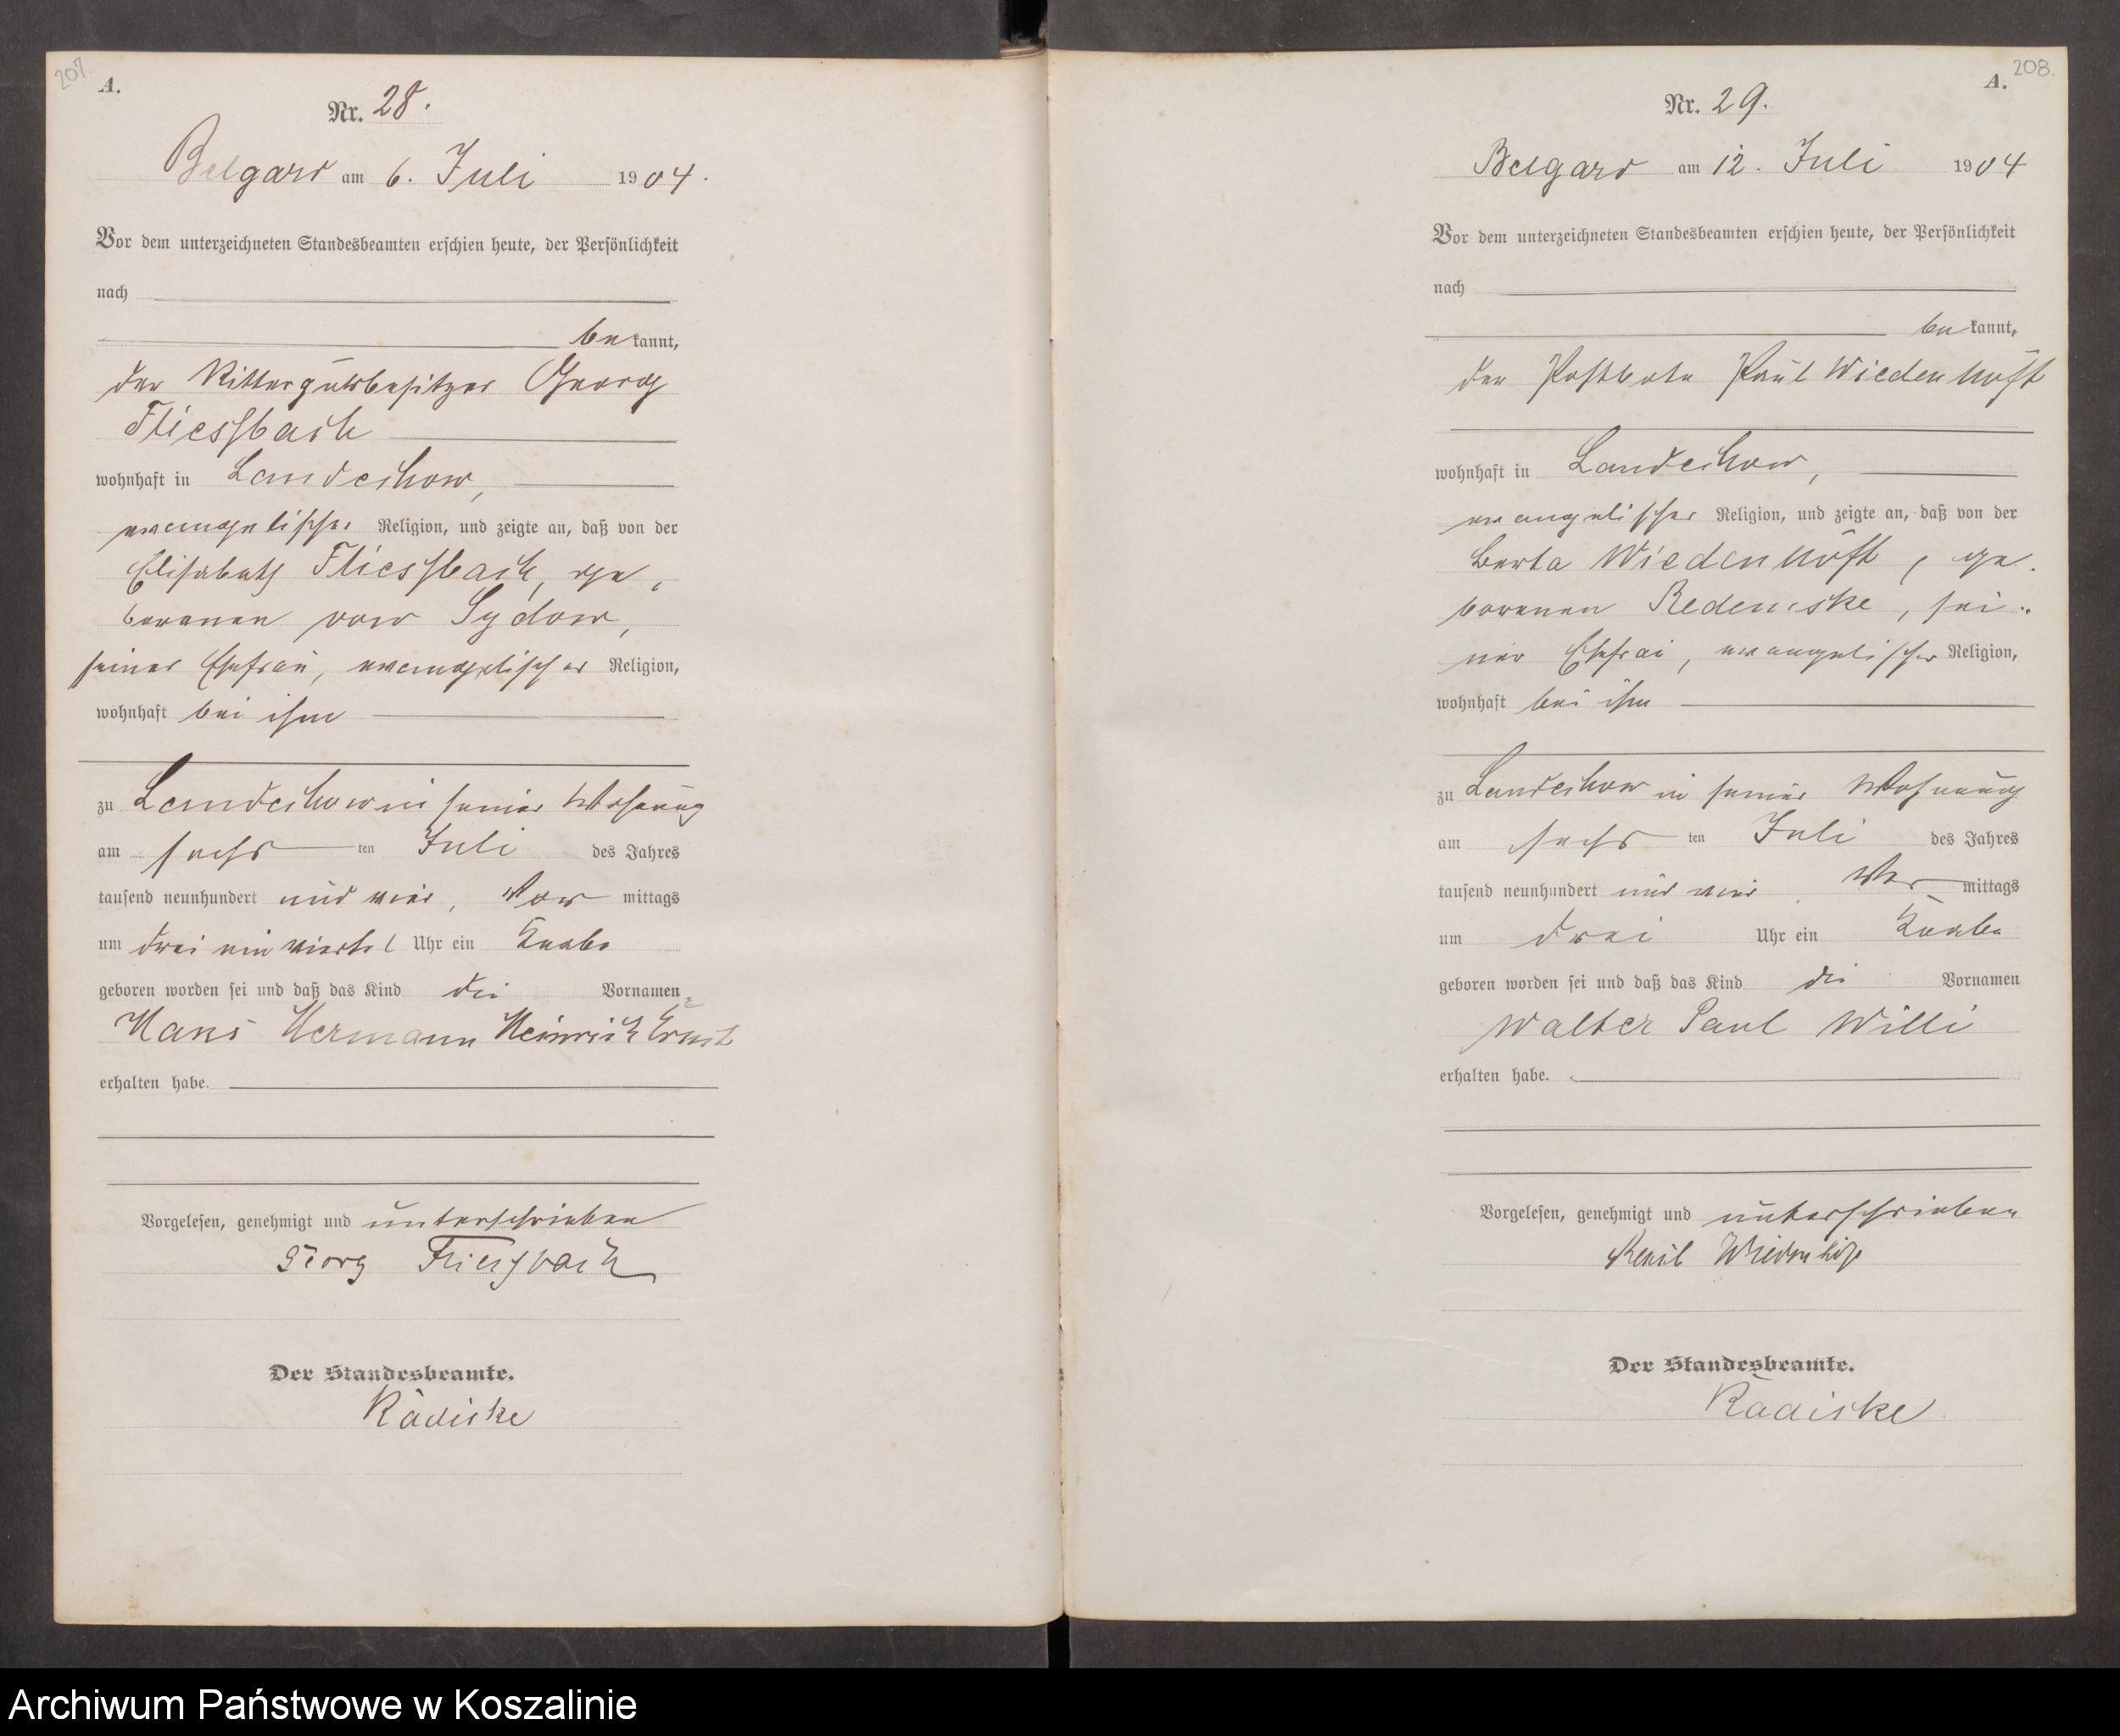 207.
A.
Nr. 28.
Belgard am 6. Juli 1904.
Vor dem unterzeichneten Standesbeamten erschien heute, der Persönlichkeit
nach
be kannt,
der Rittergutsbesitzer Georg
Fliessbach
wohnhaft in Landechow,
evangelischer Religion, und zeigte an, daß von der
Elisabeth Fliessbach, ge
borenen von Sydow,
seiner Ehefrau, evangelischer Religion,
wohnhaft bei ihm
zu Landechow in seiner Wohnung
am sechs ten Juli des Jahres
tausend neunhundert und vier, Vor mittags
um drei ein viertel Uhr ein Knabe
geboren worden sei und daß das Kind die Vornamen
Hans Hermann Heinrich Ernst
erhalten habe.
Vorgelesen, genehmigt und unterschrieben
Georg Fliessbach
Der Standesbeamte.
Rädiske
208.
A.
Nr. 29.
Belgard am 12. Juli 1904
Vor dem unterzeichneten Standesbeamten erschien heute, der Persönlichkeit
nach
be kannt,
der Postbote Paul Wiedenhöft
wohnhaft in Landechow,
evangelischer Religion, und zeigte an, daß von der
Berta Wiedenhöft, ge.
borenen , sei
ner Ehefrau, evangelischer Religion,
wohnhaft bei ihm
zu Landechow in seiner Wohnung
am sechs ten Juli des Jahres
tausend neunhundert und vier, Vor mittags
um drei Uhr ein Knabe
geboren worden sei und daß das Kind die Vornamen
Walter Paul Willi
erhalten habe.
Vorgelesen, genehmigt und unterschrieben
Paul Wiedenhöft
Der Standesbeamte.
Rädiske
Archiwum Państwowe w Koszalinie